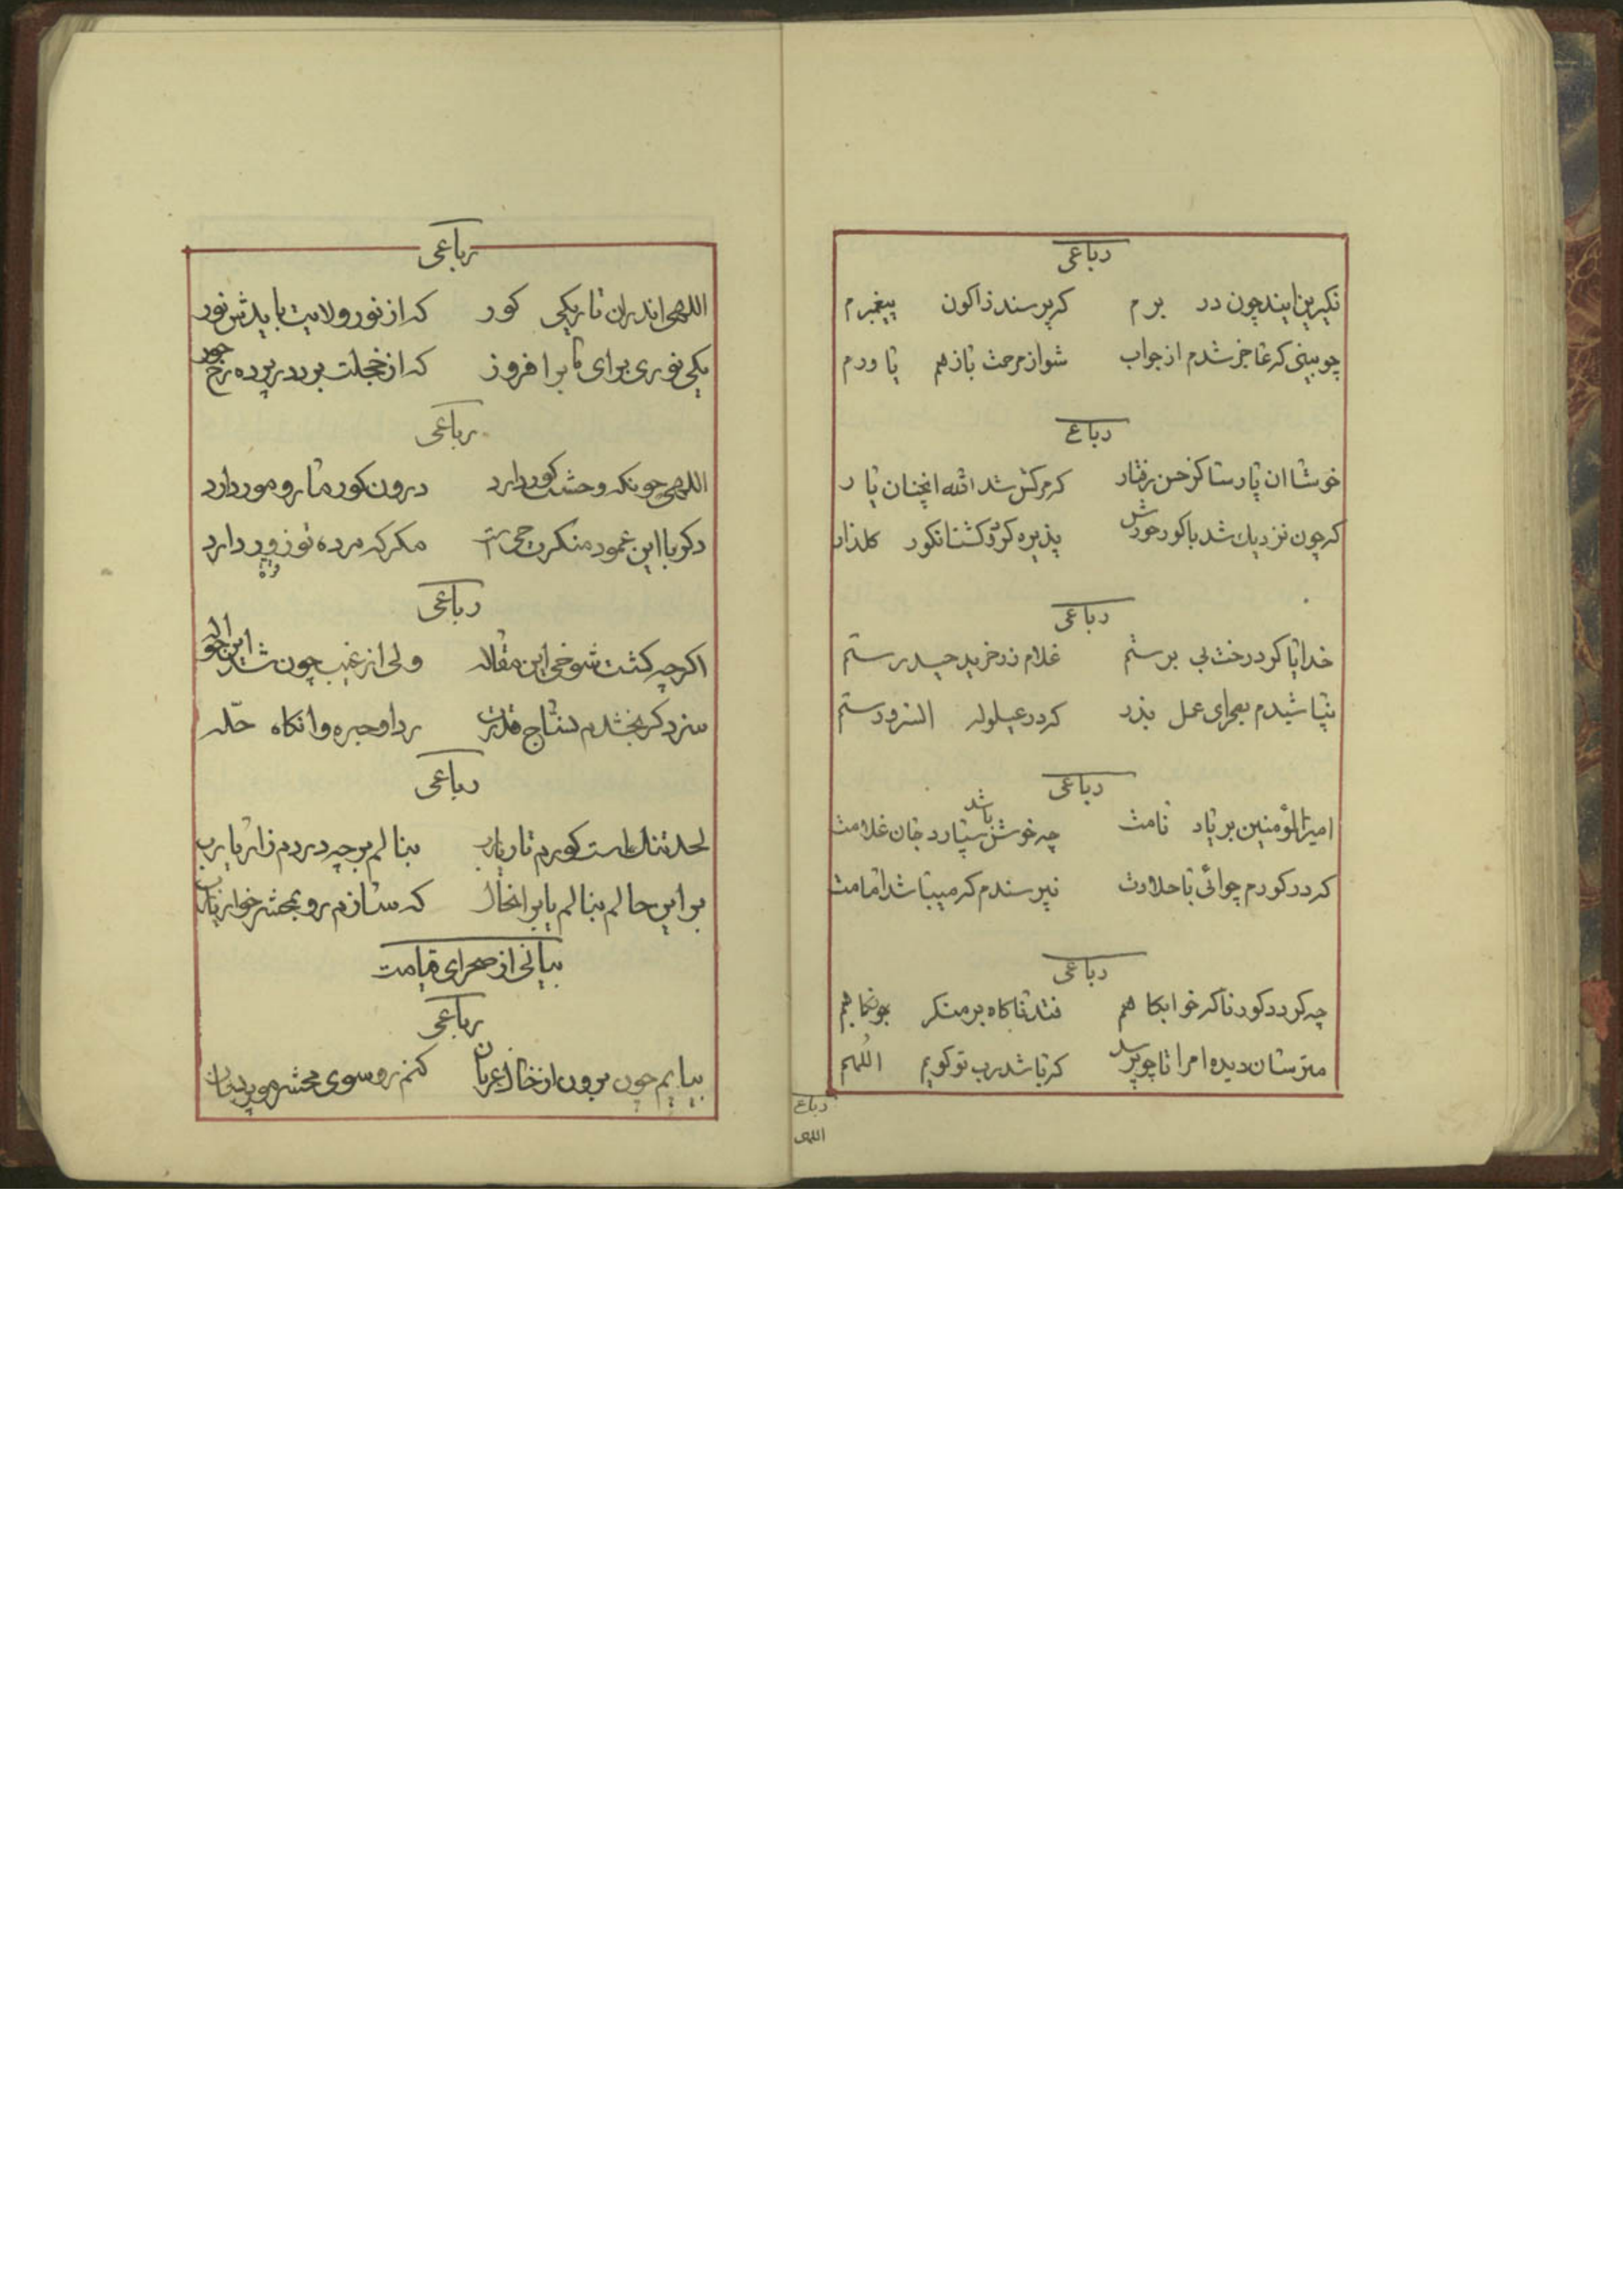 رباعی
نکیرین ایند چون در برم که پرسند زاکون پیغمبرم
چو بینی که عاجز شدم از جواب شو از مرحمت بازهم یاورم
رباع
خوشا ان پارسا کز حسن رفتار کرم کش شد الله انچنان یار
که چون نزدیك شد با کور خودش پذیره کرد کشتا نکور کلذار
رباعی
خدایا کو درخت بی برستم غلام زرخرید حیدرستم
نپاشیدم بصحرای عمل بذر که در عیلوله
رباعی
امیرالمؤمنین بر یاد نامت چه خوش باشد سپارد جان غلامت
که در کورم چو ائی با حلاوت نپرسندم که میباشد امامت
رباعی
چه کردد کور ناکه خوابکاهم فتد ناکاه بر منکر چو نکاهم
مترسان دیده ام را تا چو پرسد که باشد رب تو کویم اللهم
رباع
اللهی
رباعی
اللهی اندران تاریکی کور که از نور ولایت بایدش نور
یکی نوری برای ما برافروز که از خجلت برد در پرده رخ حور
رباعی
اللهی چونکه وحشت کور دارد درون کور مار و مور دارد
دکر با این عمود منکر چیست مکر که مرده نو زور دارد
رباعی
اکر چه کشت شوخی این مقاله ولی از غیب چون شد این حواله
سزد کر بخشدم نساج قدرت ردا و جبه و انکاه حله
رباعی
لحد تنك است کورم تار یارب بنالم بر چه دردم زار یارب
بر این حالم بنالم یا بر انحال که سازم رو بمحشر خوار یارب
بیانی از صحرای قیامت
رباعی
بیایم چون برون از خاك عریان کنم رو سوی محشر مو پریشان